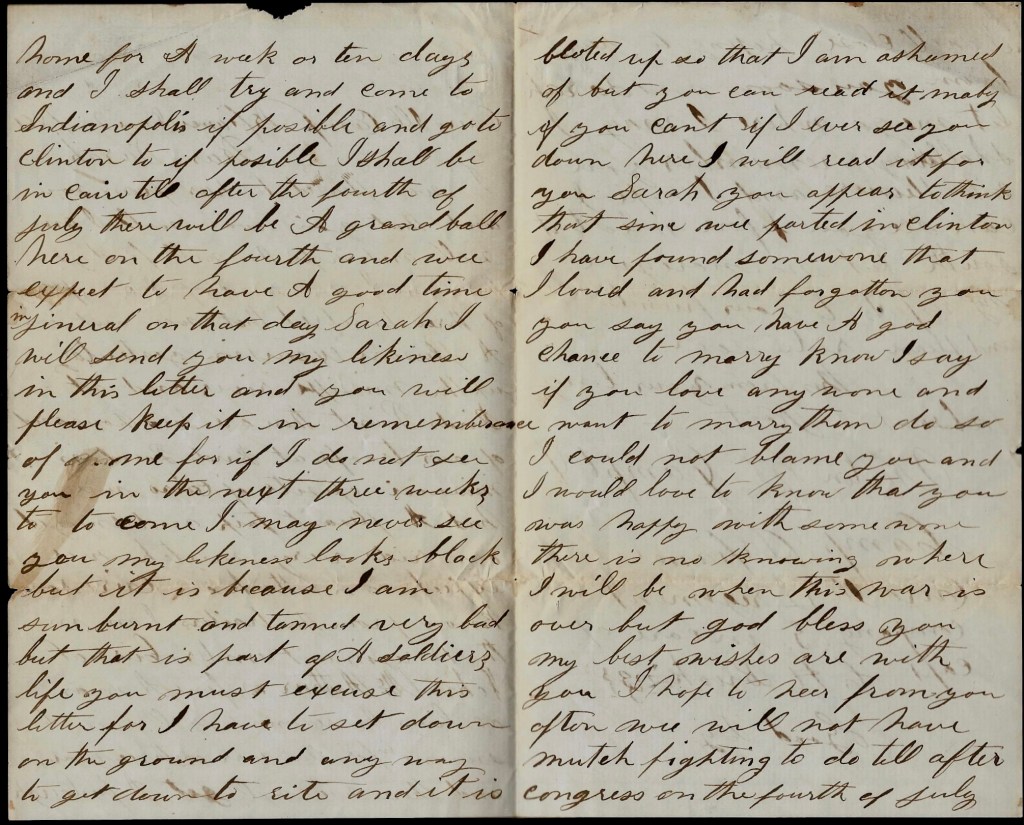 home for A week or ten days
and I shall try and come to
Indianopolis if posible and go to
clinton to if posible I shall be
in cairo till after the fourth of
july there will be A grand ball
here on the fourth and wee
expect to have A good time
in jineral on that day Sarah I
will send you my likiness
in this letter and you will
please keep it in remembrance
of me for if I do not see
you in the next three weeks
to to come I may never see
you my likeness looks black
but it is because I am
sun burnt and tanned very bad
but that is part of A soldiers
life you must excuse this
letter for I have to set down
on the ground and any way
to get down to rite and it is
bloted up so that I am ashamed
of but you can read it maby
if you cant if I ever see you
down here I will read it for
you Sarah you appear to think
that sinc wee parted in clinton
I have found somewone that
I loved and had forgotton you
you say you have A god
chance to marry know I say
if you love any none and
want to marry them do so
I could not blame you and
I would love to know that you
was happy with some none
there is no knowing where
I will be when this war is
over but god bless you
my best wishes are with
you I hope to heer from you
ofton wee will not have
mutch fighting to do till after
congress on the fourth of july